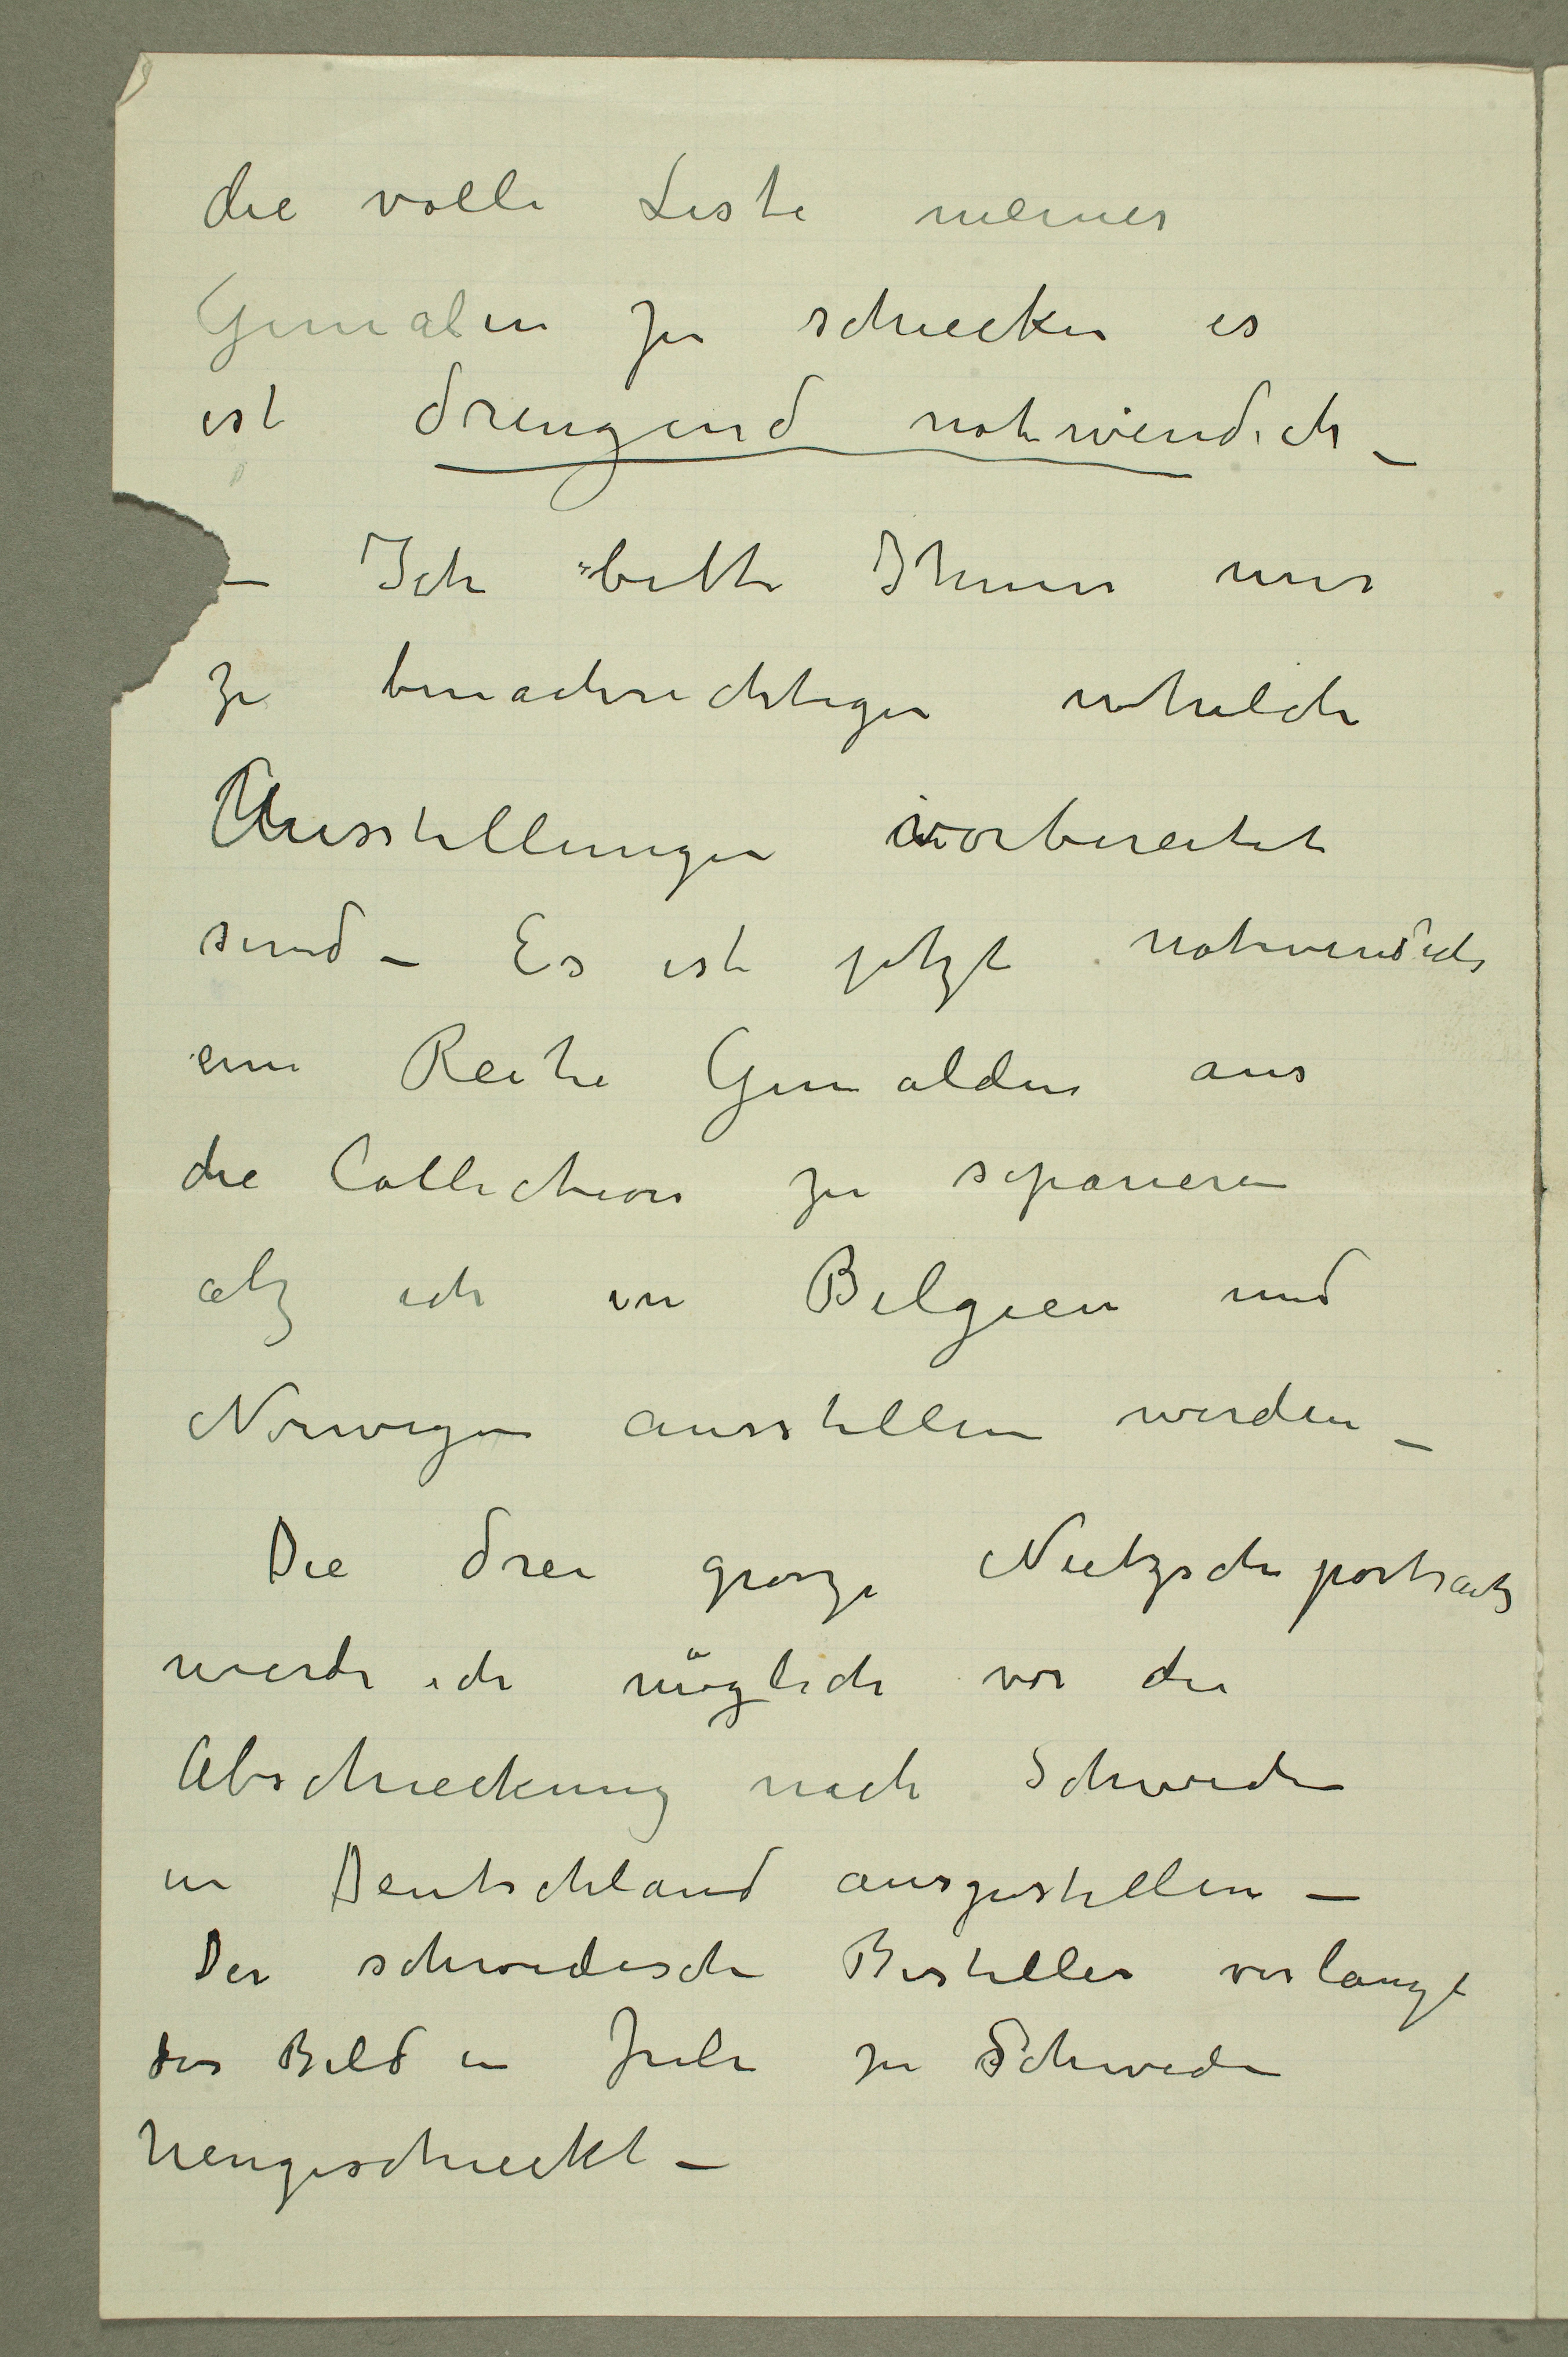 die volle Liste meiner
Gemälen zu schiecken es
ist drengend notwendich –
– Ich bitte Ihnen mir
zu benachrichtigen whelche
Ausstellungen vorbereitet
sind – Es ist jetzt notwendich
eine Reihe Gemälden aus
die Collection zu separieren
alz ich in Belgien und
Norwegen ausstellen werden –
Die drei grosze Nietzscheportraitz
werde ich möglich vor die
Abschieckung nach Schweden
in Deutschland auszustellen –
Der schwedische Besteller verlangt
das Bild in Juli zu Schweden
hengeschieckt –